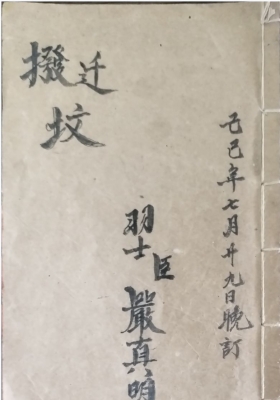 己巳年七月廿九日晚訂
迁
撥坟
羽士臣嚴真明